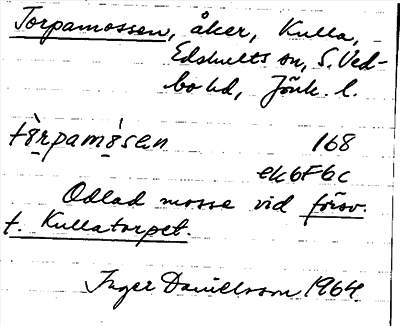 Torpamossen, åker, Kulla,
Edshults sn, S. Ved-
bo hd, Jönk. l.
tò̱rpamò̱sen 168
ek6F6c
Odlad mosse vid försv.
t. Kullatorpet.
Inger Danielsson 1964